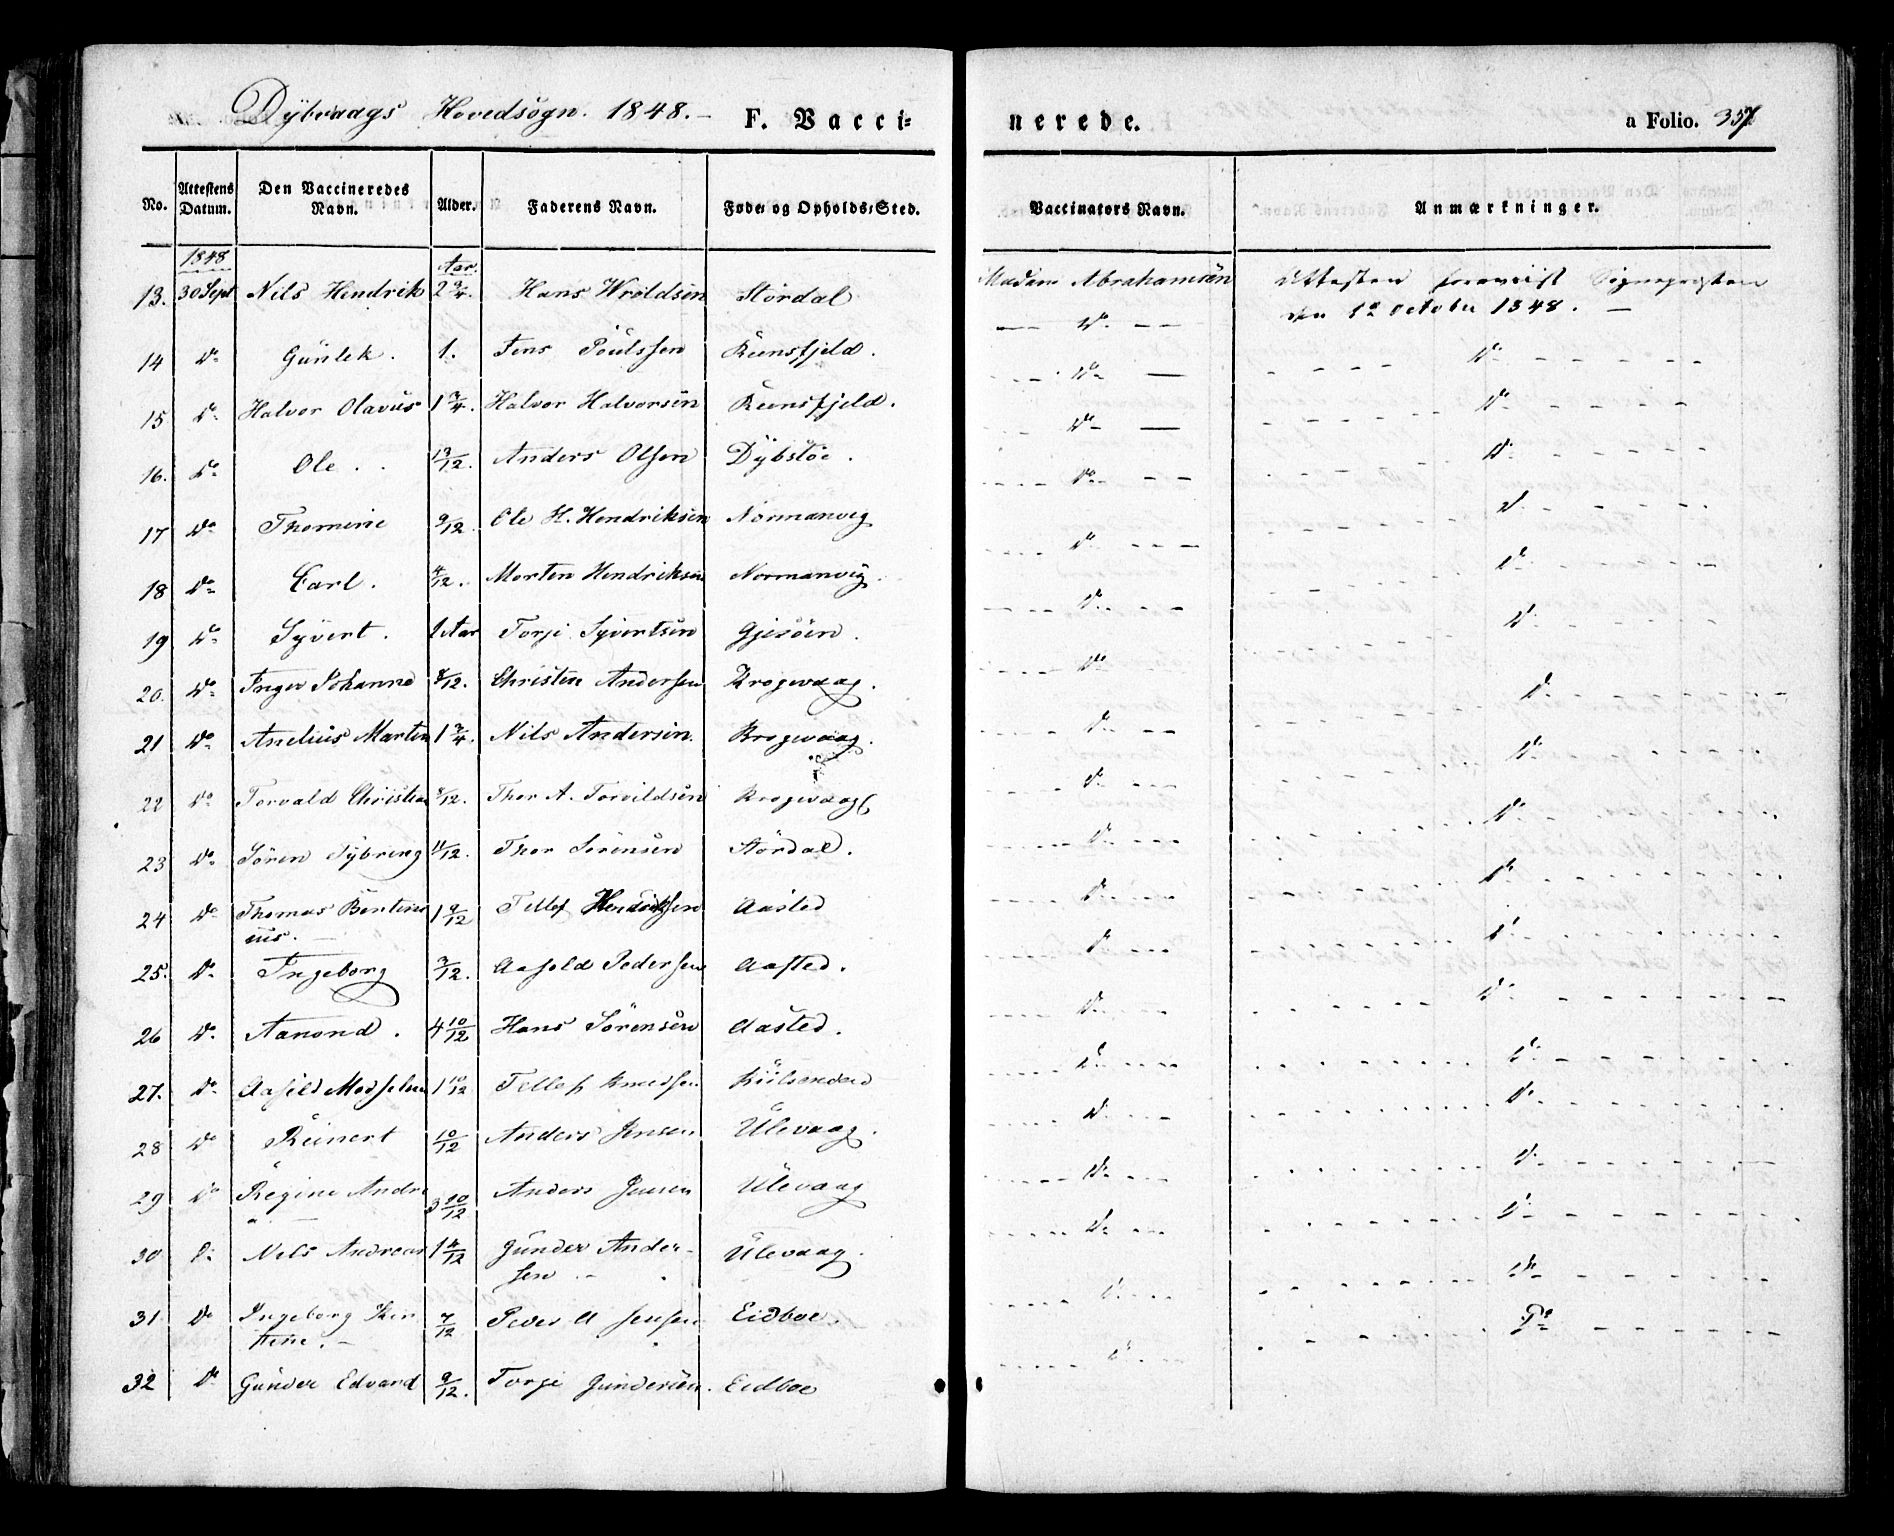 Dybvaags Hovedsogn. 1848. – F. Vacci= nerede. a Folio. 357
No. Attestens Datum. Den Vaccineredes Navn. Alder. Faderens Navn. Føde= og Opholds=Sted. Vaccinators Navn. Anmærkninger.
1848 Aar.
13. 30 Sept Nils Hendrik 2 9/4. Hans Wroldsen Stordal Madam Abrahamsen Attesten foreviist Sognepræsten
den 1e October 1848. –
14 Do Gunlek. 1. Jens Poulssen Reensfjeld. Do Do
15 Do Halvor Olavus 1 3/4. Halvor Halvorsen Reensfjeld. Do Do
16. Do Ole. 13/12. Anders Olsen Dybstøe. Do Do
17 Do Thomine 9/12. Ole H. Hendriksen Normanvig Do Do
18 Do Carl. 4/12. Morten Hendriksen Normanvig. Do Do
19 Do Syvert. 1 Aar Torje Syvertsen Gjesøen. Do Do
20. Do Inger Johanne 8/12. Christen Andersen Krogevaag. Do Do
21 Do Anelius Martin 1 3/4. Nils Andersen. Krogevaag. Do Do
22 Do Torvald Christian 8/12. Thor A. Torvildsen Krogevaag Do Do
23 Do Søren Sybreng 11/12. Thor Sørensen Stördal. Do Do
24 Do Thomas Bentini 1 9/12 Tellef Hendriksen Aasted Do Do
us. –
25. Do Ingeborg 3/12. Aasold Pedersen Aasted. Do Do
26 Do Aanond. 4 10/12 Hans Sørensen Aasted. Do Do
27. Do Aasild 1 10/12 Tellef Knudsen Do Do
28 Do Reinert 10/12 Anders Jensen Ulevaag. Do Do
29 Do Regine Andre 3 10/12 Anders Jensen Ulevaag Do Do
a. –
30 Do Nils Andreas 1 4/12 Gunder Ander- Ulevaag. Do Do
sen. –
31 Do Ingeborg Kir 7/12 Peder A Jensen Eidboe. Do Do
stine. –
32 Do Gunder Edvard 9/12. Torje Gundersen. Eidboe Do Do